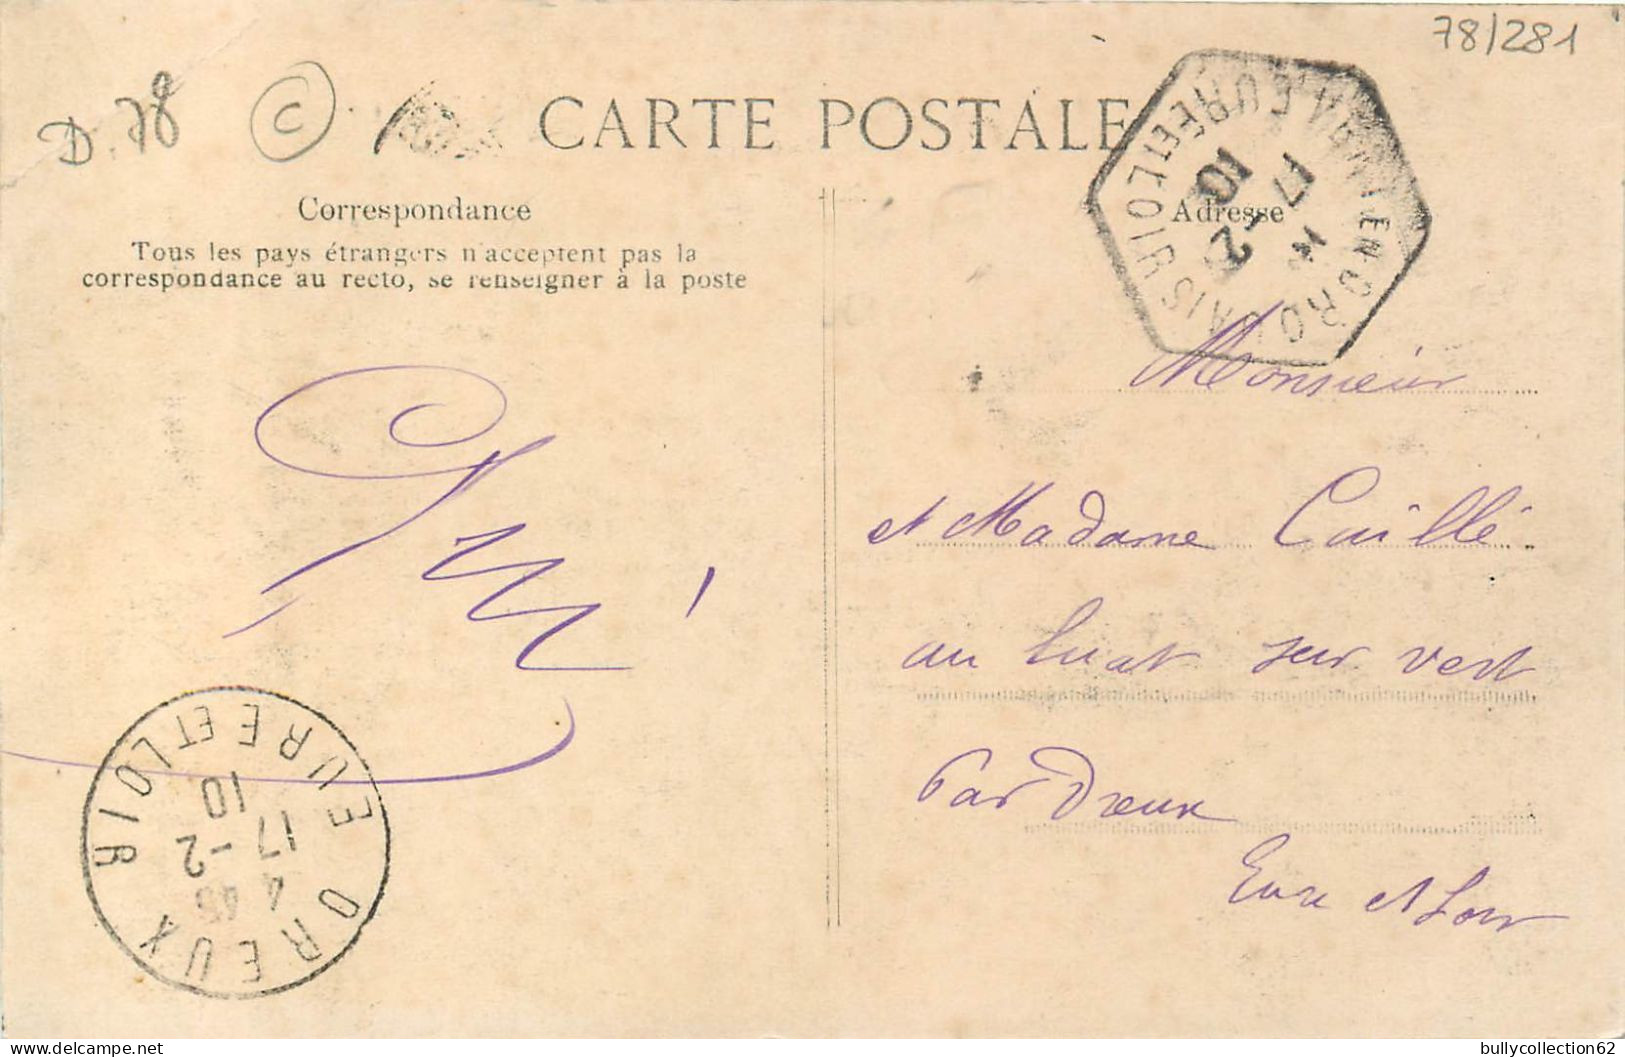 78/281
D.78
C
CARTE POSTALE
Correspondance
Tous les pays étrangers n'acceptent pas la
correspondance au recto, se renseigner à la poste
Adresse
EURE ET LOIR
17
2
10
Monsieur
et Madame Caillé
au Luat sur Vert
Par Dreux
Eure et Loir
DREUX
EURE ET LOIR
4 45
17-2
10
bullycollection62